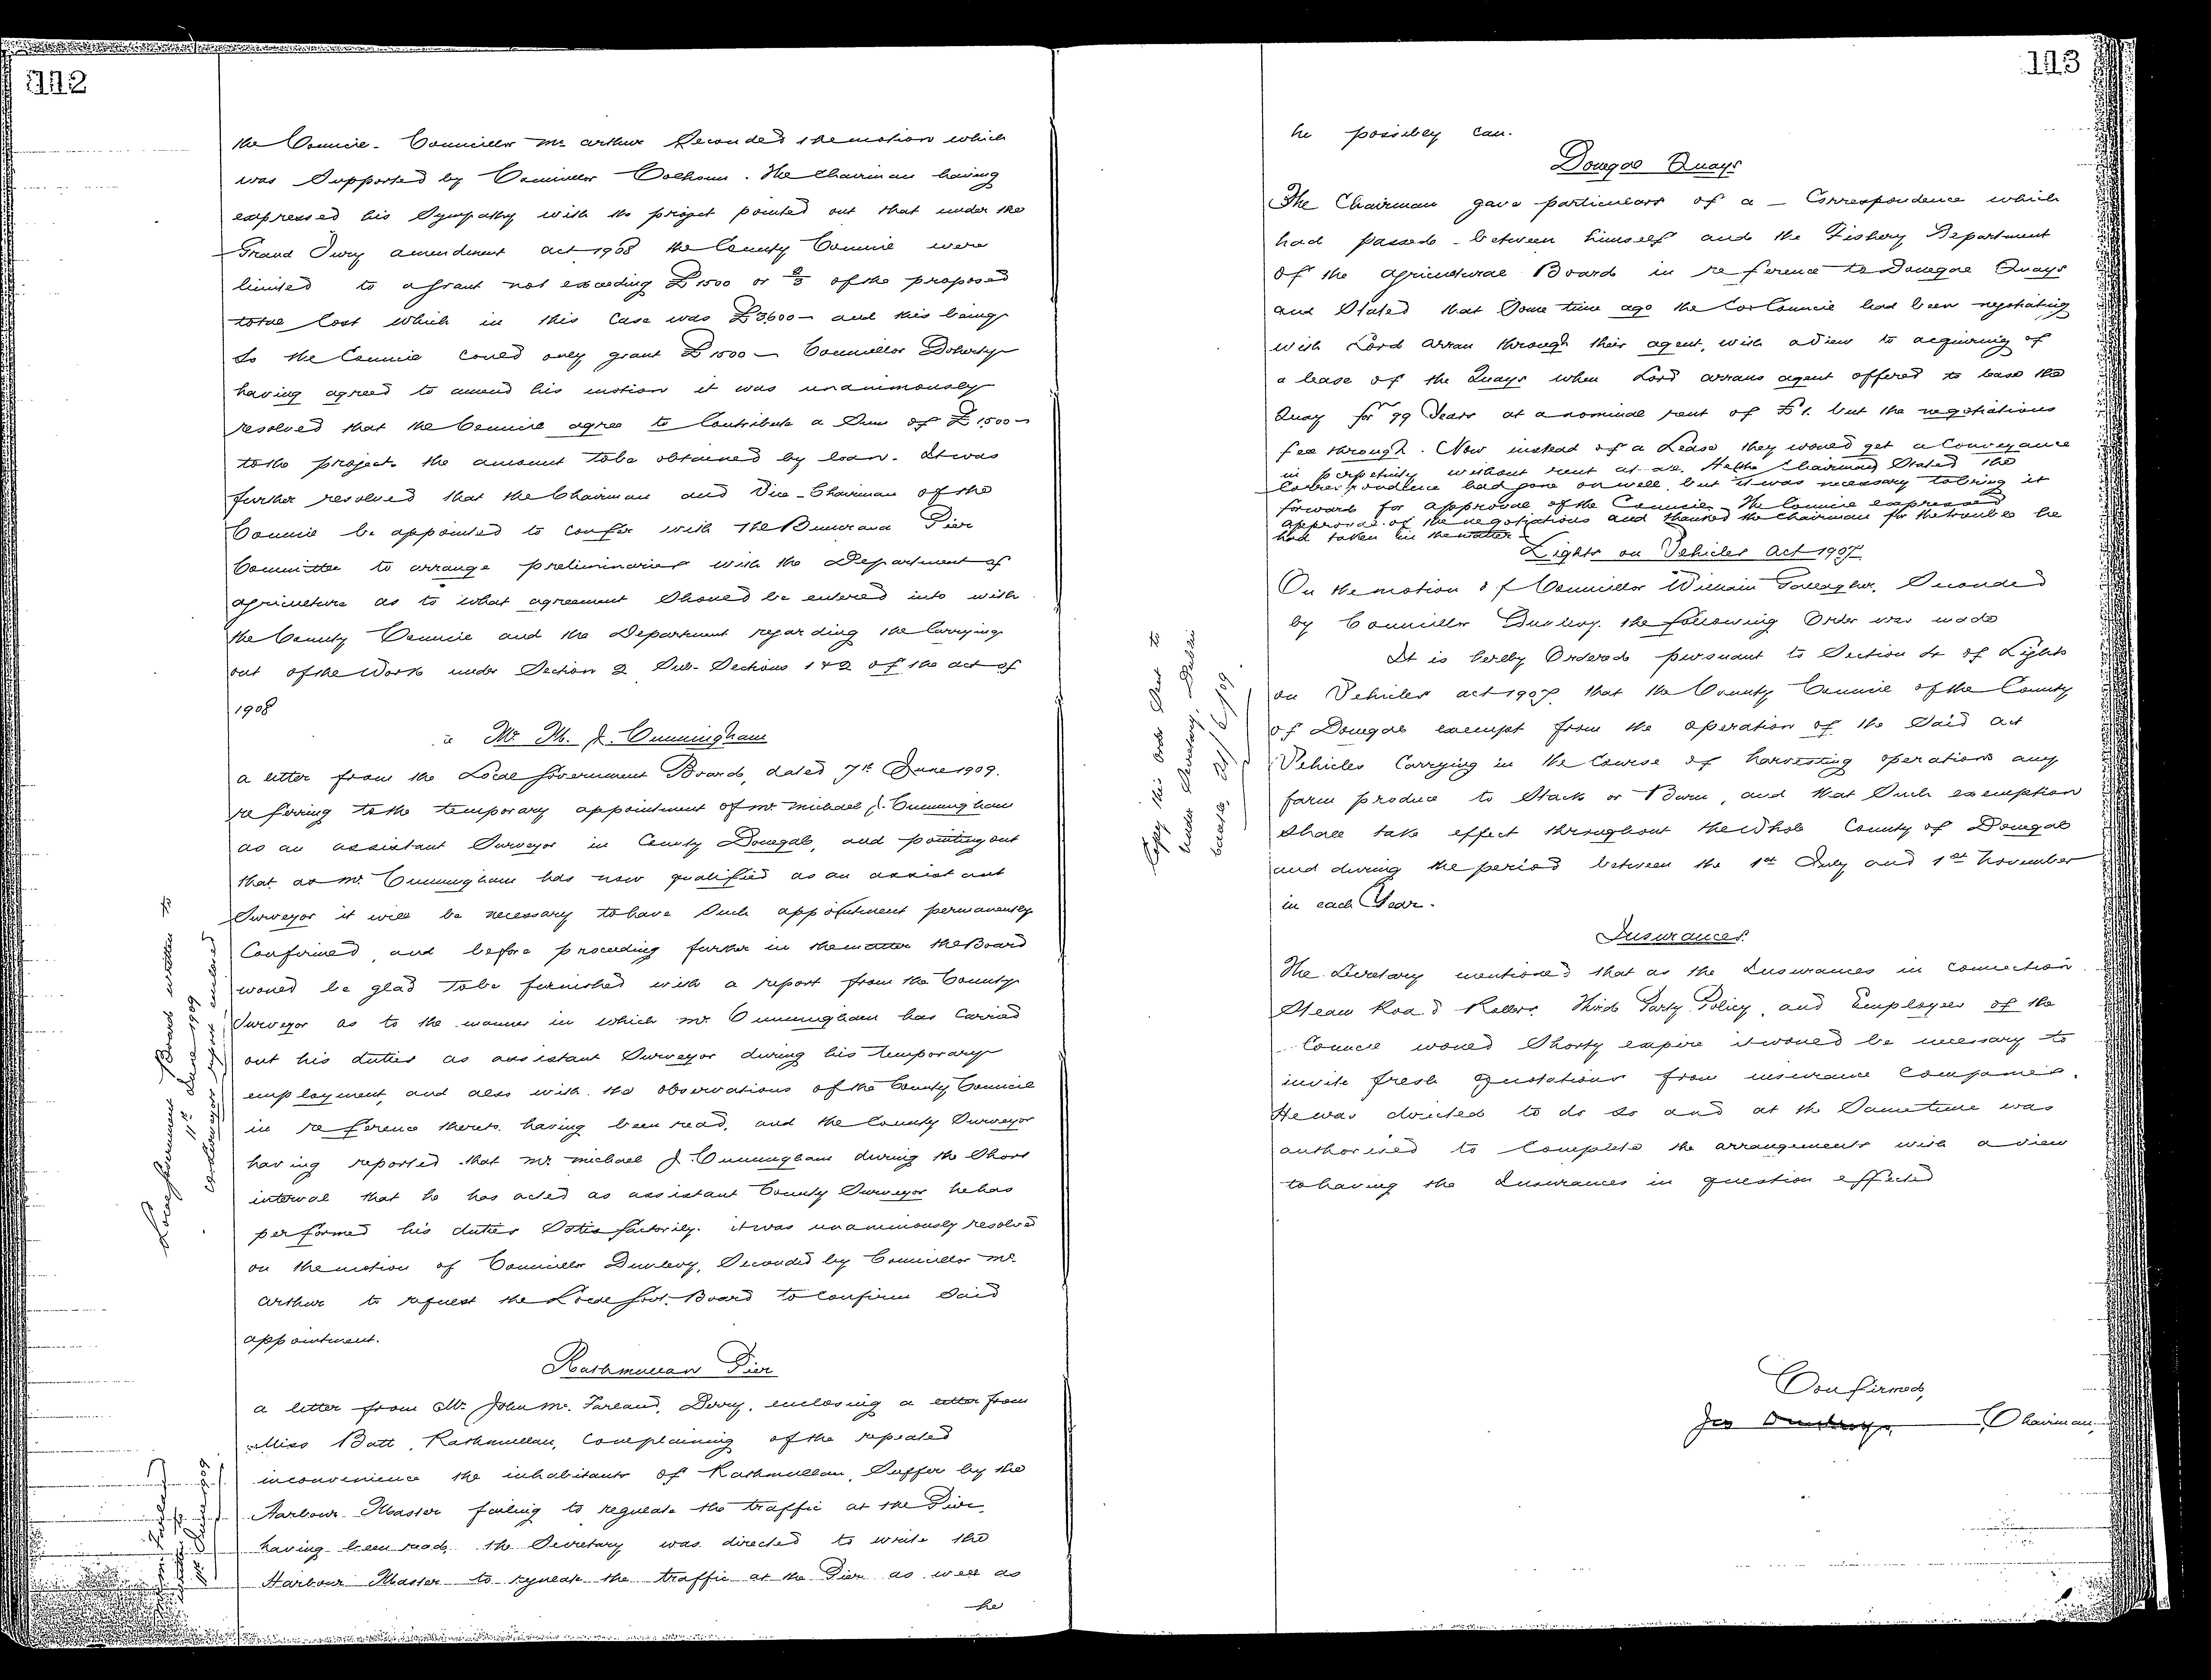 112
the Council. Councillor Mc Arthur Seconded the motion which
was Supported by Councillor Colhoun. The Chairman having
expressed his Sympathy with the project pointed out that under the
Grand Jury amendment act 1908 the County Council were
limited to a grant not exceeding £1500 or 2/3 of the proposed
total Cost which in this Case was £3,600 - and this being
So the Council could only grant £1500 - Councillor Doherty
having agreed to amend his motion it was unanimously
resolved that the Council agree to Contribute a Sum of £1,500 -
to the project. the amount to be obtained by loan. It was
further resolved that the Chairman and Vice-Chairman of the
Council be appointed to confer with The Buncrana Pier
Committee to arrange preliminaries with the Department of
agriculture as to what agreement Should be entered into with
the County Council and the Department regarding the Carrying
out of the Work under Section 2 Sub-Sections 1 & 2 of the act of
1908
Mr. M. J. Cunningham
a letter from the Local Government Board, dated 7th June 1909.
referring to the temporary appointment of Mr. Michael J. Cunningham
as an assistant Surveyor in County Donegal, and pointing out
that as Mr. Cunningham has now qualified as an assistant
Surveyor it will be necessary to have Such appointment permanently
Confirmed, and before proceeding further in the matter the Board
would be glad to be furnished with a report from the County
Surveyor as to the manner in which Mr. Cunningham has Carried
out his duties as assistant Surveyor during his temporary
employment, and also with the observations of the County Council
in reference thereto having been read, and the County Surveyor
having reported that Mr. Michael J. Cunningham during the Short
interval that he has acted as assistant County Surveyor he has
performed his duties Satisfactorily. it was unanimously resolved
on the motion of Councillor Dunlevy, Seconded by Councillor Mc
Arthur to request the Local Govt. Board to Confirm Said
appointment.
Local Government Board written to
11th June 1909
Co Surveyors report enclosed
Rathmullan Pier
a letter from Mr. John Mc. Farland, Derry, enclosing a letter from
Miss Batt, Rathmullan, Complaining of the repeated
inconvenience the inhabitants of Rathmullan, Suffer by the
Harbour Master failing to regulate the traffic at the Pier,
having been read, the Secretary was directed to write the
Harbour Master to regulate the traffic at the Pier as well as
he
written to
11th June 1909
113
he possibley can.
Donegal Quays
The Chairman gave particulars of a - Correspondence which
had passed - between himself and the Fishery Department
of the agricultural Board in reference to Donegal Quays
and Stated that Some time ago the Co Council had been negotiating
with Lord Arran through their agent, with a view to acquiring of
a lease of the Quays when Lord Arrans agent offered to lease the
Quay for 99 Years at a nominal rent of £1. but the negotiations
fell through. Now instead of a Lease they would get a Conveyance
in perpetuity without rent at all. He the Chairman Stated the
Correspondence had gone on well, but it was necessary to bring it
forward for approval of the Council. The Council expressed
approval of the negotiations and thanked the Chairman for the trouble he
had taken in the matter -
Lights on Vehicles Act 1907
On the motion of Councillor William Gallagher, Seconded
by Councillor Dunlevy. the following Order was made
It is hereby Ordered pursuant to Section 4 of Lights
on Vehicles act 1907, that the County Council of the County
of Donegal exempt from the operation of the Said act
Vehicles Carrying in the Course of harvesting operations any
farm produce to Stack or Barn, and that Such exemption
Shall take effect throughout the Whole County of Donegal
and during the period between the 1st July and 1st November
in each Year.
Copy this order Sent to
Under Secretary, Dublin
Castle, 21/6/09
Insurances.
The Secretary mentioned that as the Insurances in connection
Steam Road Rollers. Third Party Policy, and Employees of the
Council would Shorty expire it would be necessary to
invite fresh quotations from insurance Companies.
He was directed to do so and at the Sametime was
authorised to Complete the arrangements with a view
to having the Insurances in question effected
Confirmed,
Chairman,